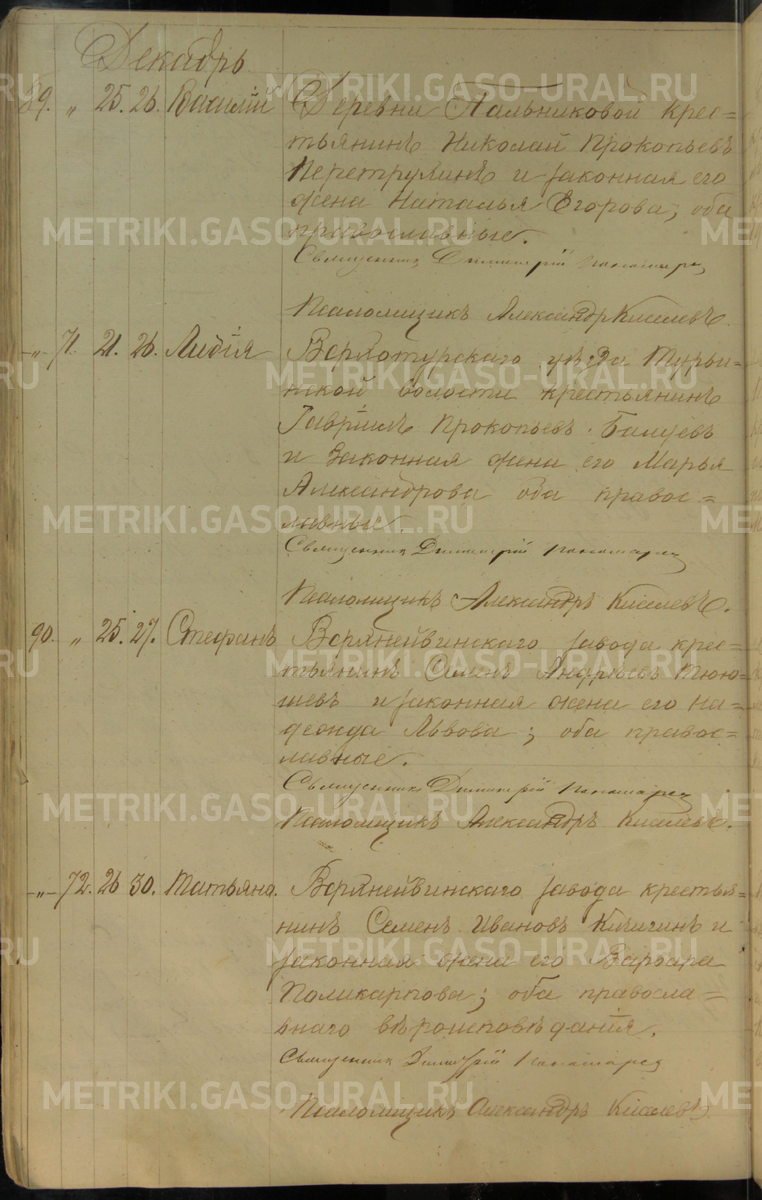 Декабрь
89. „ 25. 26. Василій Деревни Пальниковой крес=
тьянинъ Николай Прокопьевъ
Перетрулинъ и законная его
жена Наталья Егорова, оба
православные.
Священник Димитрій Пономарев
Псаломщикъ Александръ Киселевъ.
„ 71. 21. 26. Лидія Верхотурскаго уѣзда Турьи=
нской волости крестьянинъ
Гавріилъ Прокопьевъ
и законная жена его Марья
Александрова оба правос=
лавные.
Священник Димитрій Пономарев
Псаломщикъ Александръ Киселевъ.
90. „ 25. 27. Стефанъ Верхнейвинскаго завода крес=
тьянинъ Семенъ Андреевъ Тюю=
шевъ и законная жена его На=
дежда Львова; оба правос=
лавные.
Священник Димитрій Пономарев
Псаломщикъ Александръ Киселевъ.
„ 72. 26 30. Татьяна. Верхнейвинскаго завода крестья=
нинъ Семенъ Ивановъ Кичигинъ и
законная жена его Варвара
Поликарпова; оба правосла=
внаго вѣроисповѣданія.
Священник Димитрій Пономарев
Псаломщикъ Александръ Киселевъ
METRIKI.GASO-URAL.RU